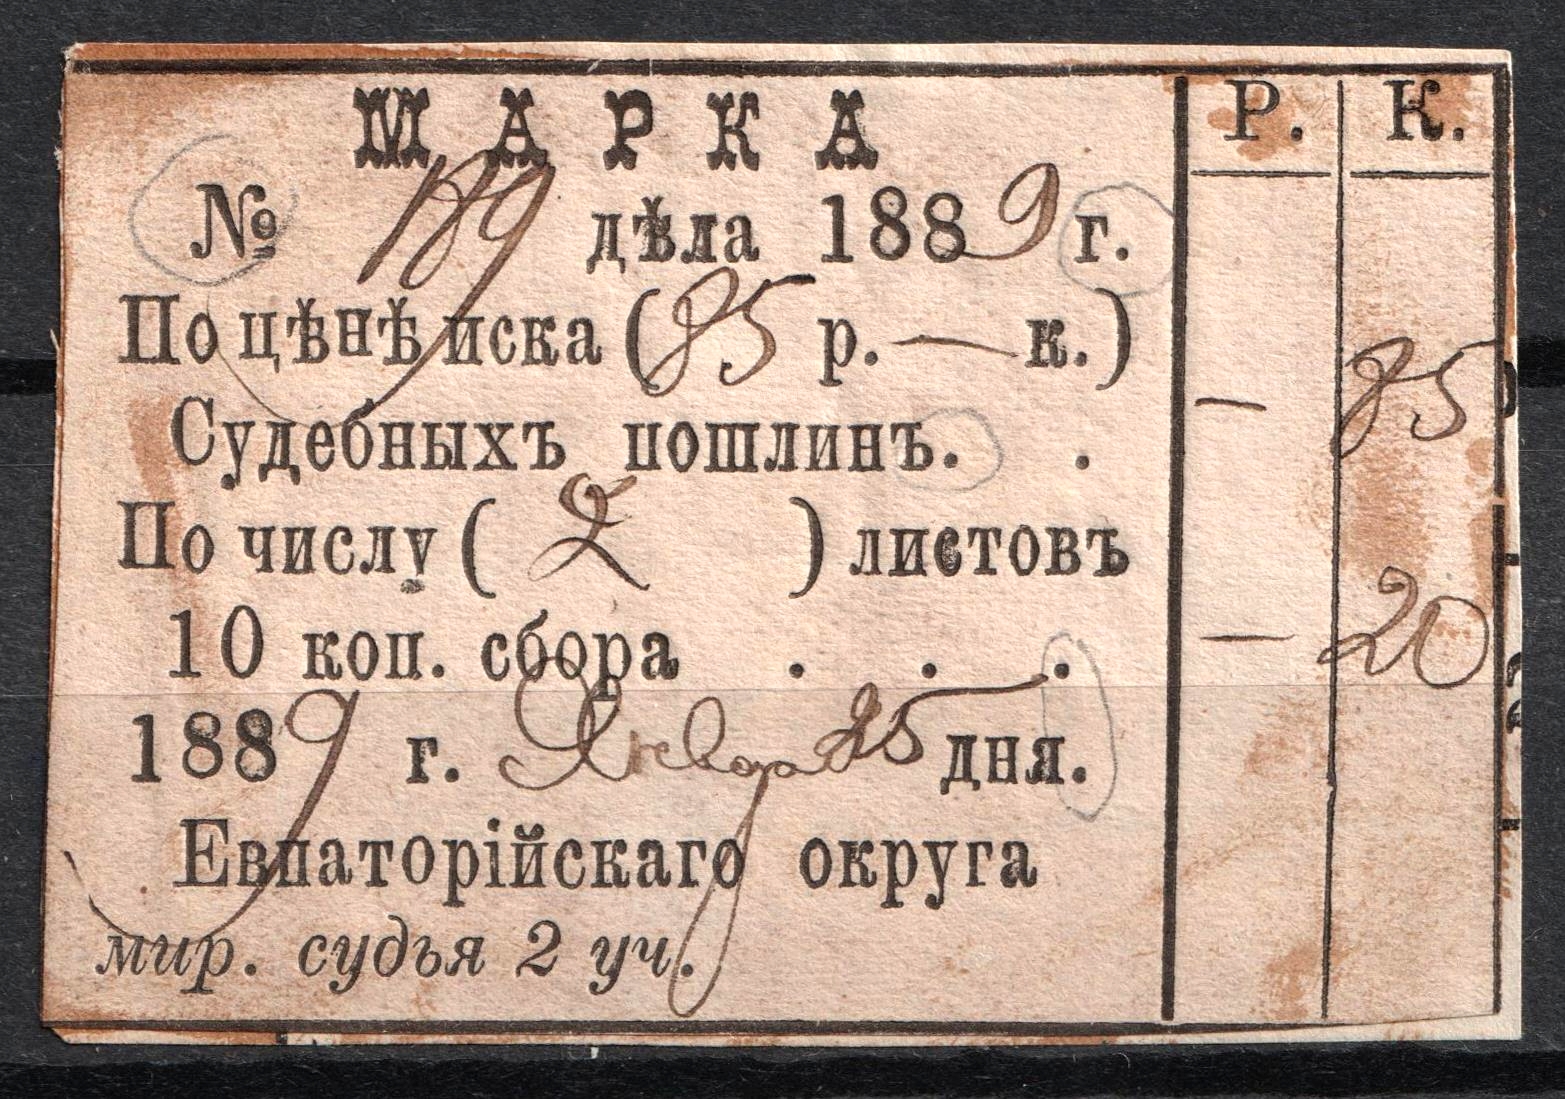 МАРКА Р. К.
№ 189 дѣла 1889 г.
По цѣнѣ иска (85 р. — к.)
Судебныхъ пошлинъ. . — 85
По числу ( 2 ) листовъ
10 коп. сбора . . . — 20
1889 г. Января 25 дня.
Евпаторійскаго округа
мир. судья 2 уч.